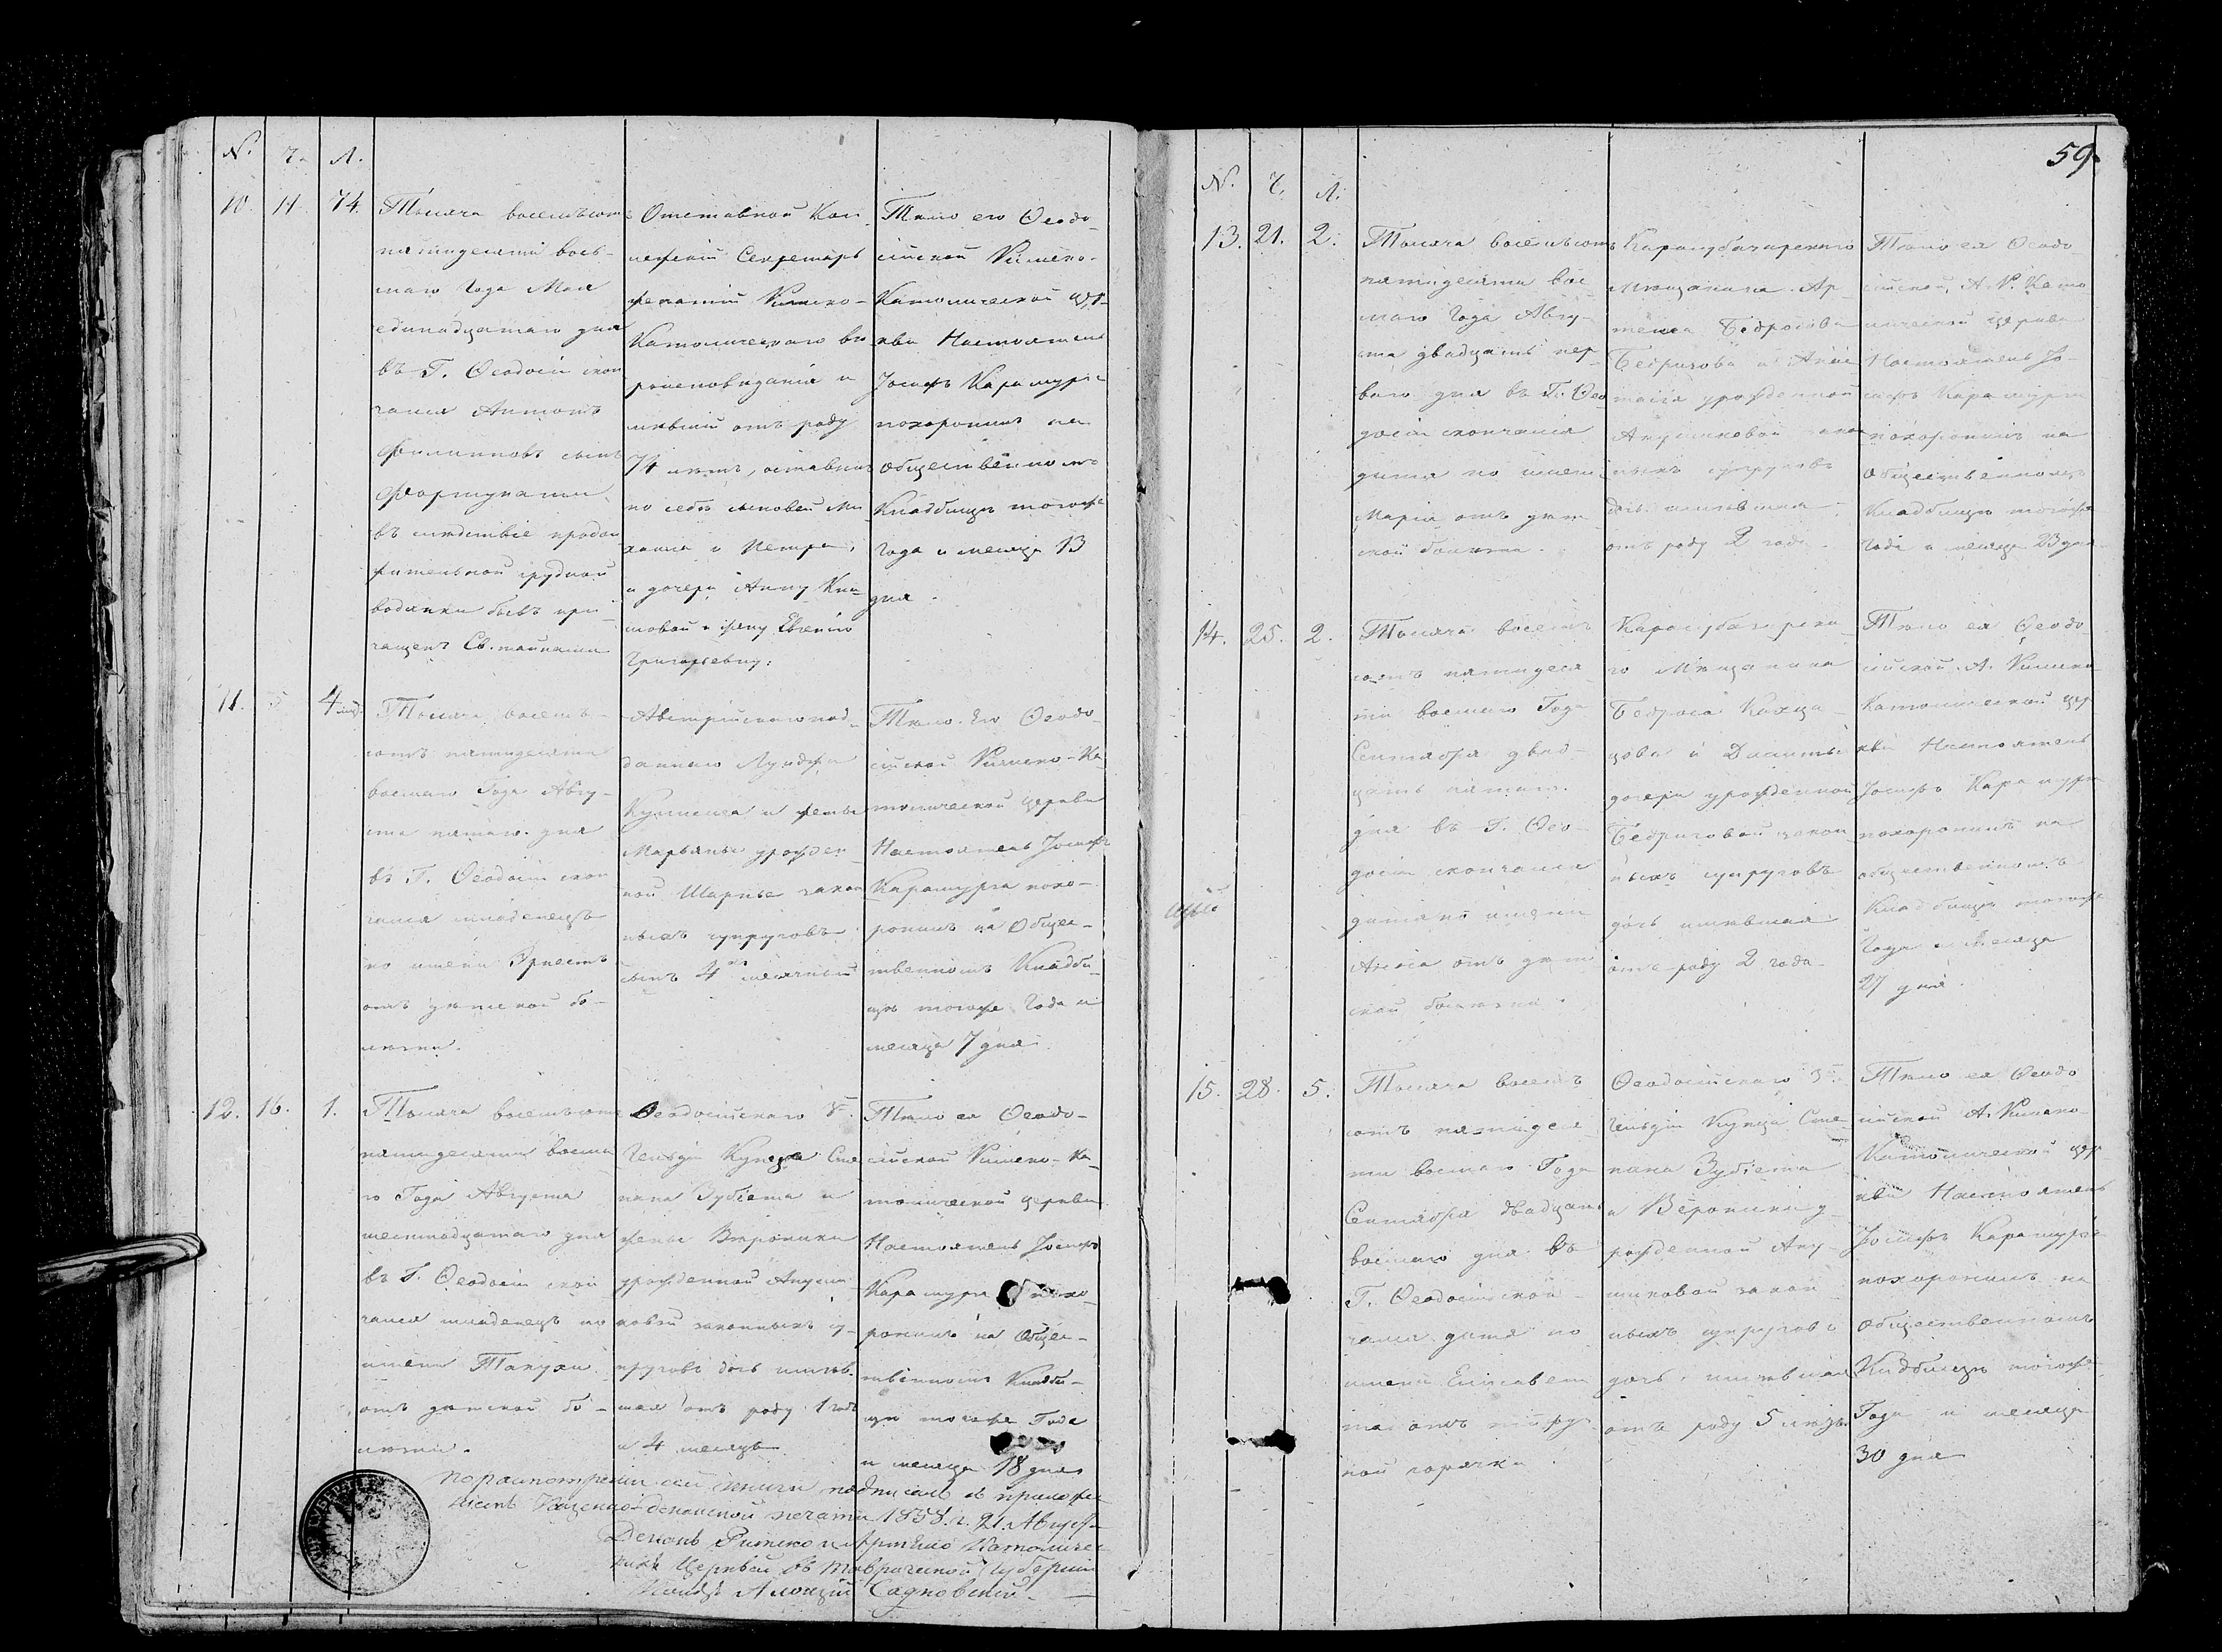 N. Ч. Л.
10. 11. 74.
Тысяча восемьсотъ
пятидесятаго вось-
маго Года Мая
единадцатаго дня
въ Г. Ѳеодосіи скон
чался Антонъ
Филипповъ сынъ
Фортунати,
въ слѣдствіе продол
жительной грудной
водянки бывъ при
чащенъ Св. тайнами
Отставной Кол-
лежскій Секретарь
Римско-
Католическаго вѣ
роисповѣданія и
имѣвшій отъ роду
74 лѣтъ, оставивъ
по себѣ сыновей Ми
хаила и Петра,
и дочери Анну
и жену Евгенію
Григорьевну.
Тѣло его Ѳеодо-
сійской Римско-
Католической цер-
кви Настоятель
Іосифъ Карамурза
похоронилъ на
общественномъ
Кладбищѣ тогоже
Года и месяца 13
дня.
11. 5 4 мѣс.
Тысяча восемь-
сотъ пятидесятъ
восьмаго Года Авгу-
ста пятаго дня
въ Г. Ѳеодосіи скон
чался младенецъ
по имени Эрнестъ
отъ дѣтской бо-
лезни.
Австрійскаго под-
даннаго
и жены
Марьяны урожден-
ной закон
ныхъ супруговъ
сынъ 4хъ месячный
Тѣло Его Ѳеодо-
сійской Римско-Ка-
толической церкви
Настоятель Іосифъ
Карамурза похо-
ронилъ на Общес-
твенномъ Кладби-
щѣ тогоже Года и
месяца 7 дня.
12. 16. 1.
Тысяча восемьсотъ
пятидесяти восьма
го Года Августа
шестнадцатаго дня
въ Г. Ѳеодосіи скон
чался младенецъ по
имени
отъ дѣтской бо-
лезни.
Ѳеодосійскаго
Гильдіи Купца Сте
пана Зубіета и
жены Вероники
урожденной
законныхъ су-
пруговъ дочь имѣв-
шая отъ роду 1 годъ
и 4 месяцъ
Тѣло ея Ѳеодо-
сійской Римско-Ка-
толической церкви
Настоятель Іосифъ
Карамурза похо-
ронилъ на Общес-
твенномъ Кладби-
щѣ тогоже Года
и месяца 18 дня
По разсмотреніи сей книги подписалъ съ приложе
ніемъ деканской печати 1858 г. 21 Августа
Деканъ Римско и Армяно Католичес
кихъ Церквей въ Таврической Губерніи
Садковскій
59
N. Ч. Л.
13. 21. 2.
Тысяча восемьсотъ
пятидесяти вос-
маго Года Авгу-
ста двадцать пер-
ваго дня въ Г. Ѳео
досіи скончался
дитя по имени
Марія отъ дет
ской болезни.
Карасубазарскаго
Мещанина Ар-
Бедросова
и
урожденной
закон
ныхъ супруговъ
дочь имѣвшая
отъ роду 2 года
Тѣло ея Ѳеодо
сійской, А. Р. Като
лической церкви
Настоятель Іо-
сифъ Карамурза
похоронилъ на
Общественномъ
Кладбищѣ тогоже
Года и месяца 23 дня
14. 25. 2.
Тысяча восемь
сотъ пятидеся
ти восмаго Года
Сентября двад-
цать пятаго
дня въ Г. Ѳео-
досіи скончался
дитя по имени
отъ дет
ской болезни.
Карасубазарска-
го Мещанина
Бедроса
и
дочери урожденной
закон
ныхъ супруговъ
дочь имѣвшая
отъ роду 2 года
Тѣло ея Ѳеодо
сійской А. Римско
Католической цер
кви Настоятель
Іосифъ Карамурза
похоронилъ на
общественномъ
Кладбищѣ тогоже
Года и Месяца
27 дня.
15. 28. 5.
Тысяча восемь
сотъ пятидеся
ти восмаго Года
Сентября двадцать
восьмаго дня въ
Г. Ѳеодосіи скон
чался дитя по
имени Елисавет
та отъ
ной горячки.
Ѳеодосійскаго 3й
Гильдіи Купца Сте
пана Зубіета
и Вероники у-
рожденной
закон
ныхъ супруговъ
дочь, имѣвшая
отъ роду 5 лѣтъ
Тѣло ея Ѳеодо
сійской А. Римско-
Католической цер
кви Настоятель
Іосифъ Карамурза
похоронилъ на
Общественномъ
Кладбищѣ тогоже
Года и месяца
30 дня